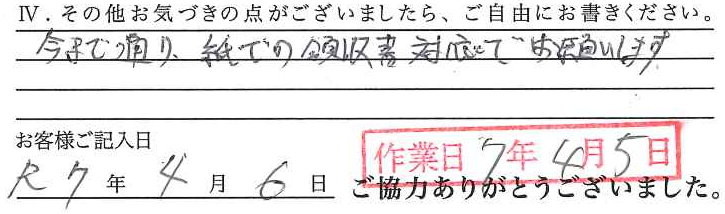 Ⅳ．その他お気づきの点がございましたら、ご自由にお書きください。
今まで通り、紙での領収書対応でお願いします
お客様ご記入日
作業日 7年4月5日
R7年4月6日
ご協力ありがとうございました。